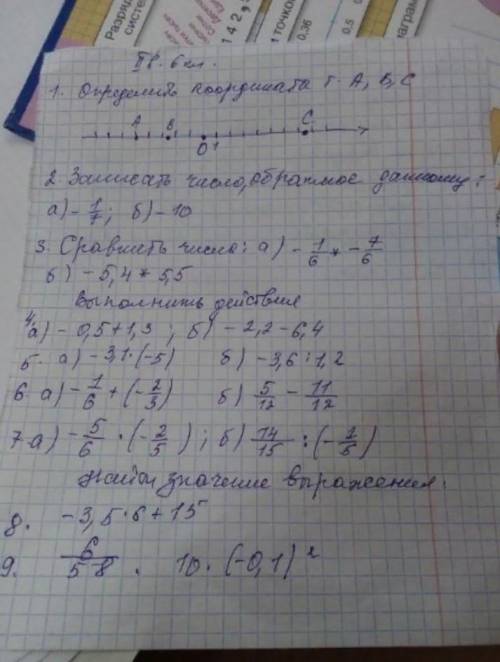 Разряд
систе
1 4 2 9
точко
0,36
0.5
0,4
диаграм
IV. 6 кл.
1. Определить координаты т. А, В, С
А В С
0 1
2. Записать число, обратное данному:
а) - 1/7; б) - 10
3. Сравнить числа: а) - 1/6 * - 7/6
б) - 5,4 * 5,5
Выполнить действия
4. а) - 0,5 + 1,3 ; б) - 2,2 - 6,4
5. а) - 3,1 · (-5) б) - 3,6 : 1,2
6. а) - 1/6 + (- 2/3) б) 5/12 - 11/12
7. а) - 5/6 · (- 2/5) ; б) 14/15 : (- 2/5)
Найти значение выражения.
8. - 3,5 · 6 + 15
9. 6/58 . 10 · (-0,1)²